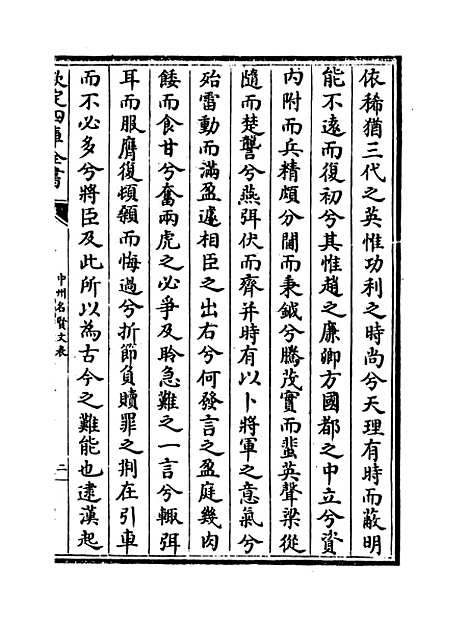 依稀猶三代之英惟功利之時尚兮天理有時而蔽明
能不遠而復初兮其惟趙之廉卿方國都之中立兮資
內附而兵精頗分閫而秉鉞兮騰茂實而蜚英聲梁從
隨而楚讋兮燕弭伏而齊并時有以卜將軍之意氣兮
殆雷動而滿盈遽相臣之出右兮何發言之盈庭幾肉
餧而食甘兮奮兩虎之必爭及聆急難之一言兮輒弭
耳而服膺復頃顙而悔過兮折節負贖罪之荆在引車
而不必多兮將臣及此所以為古今之難能也逮漢起
欽定四庫全書
中州名賢文表
二